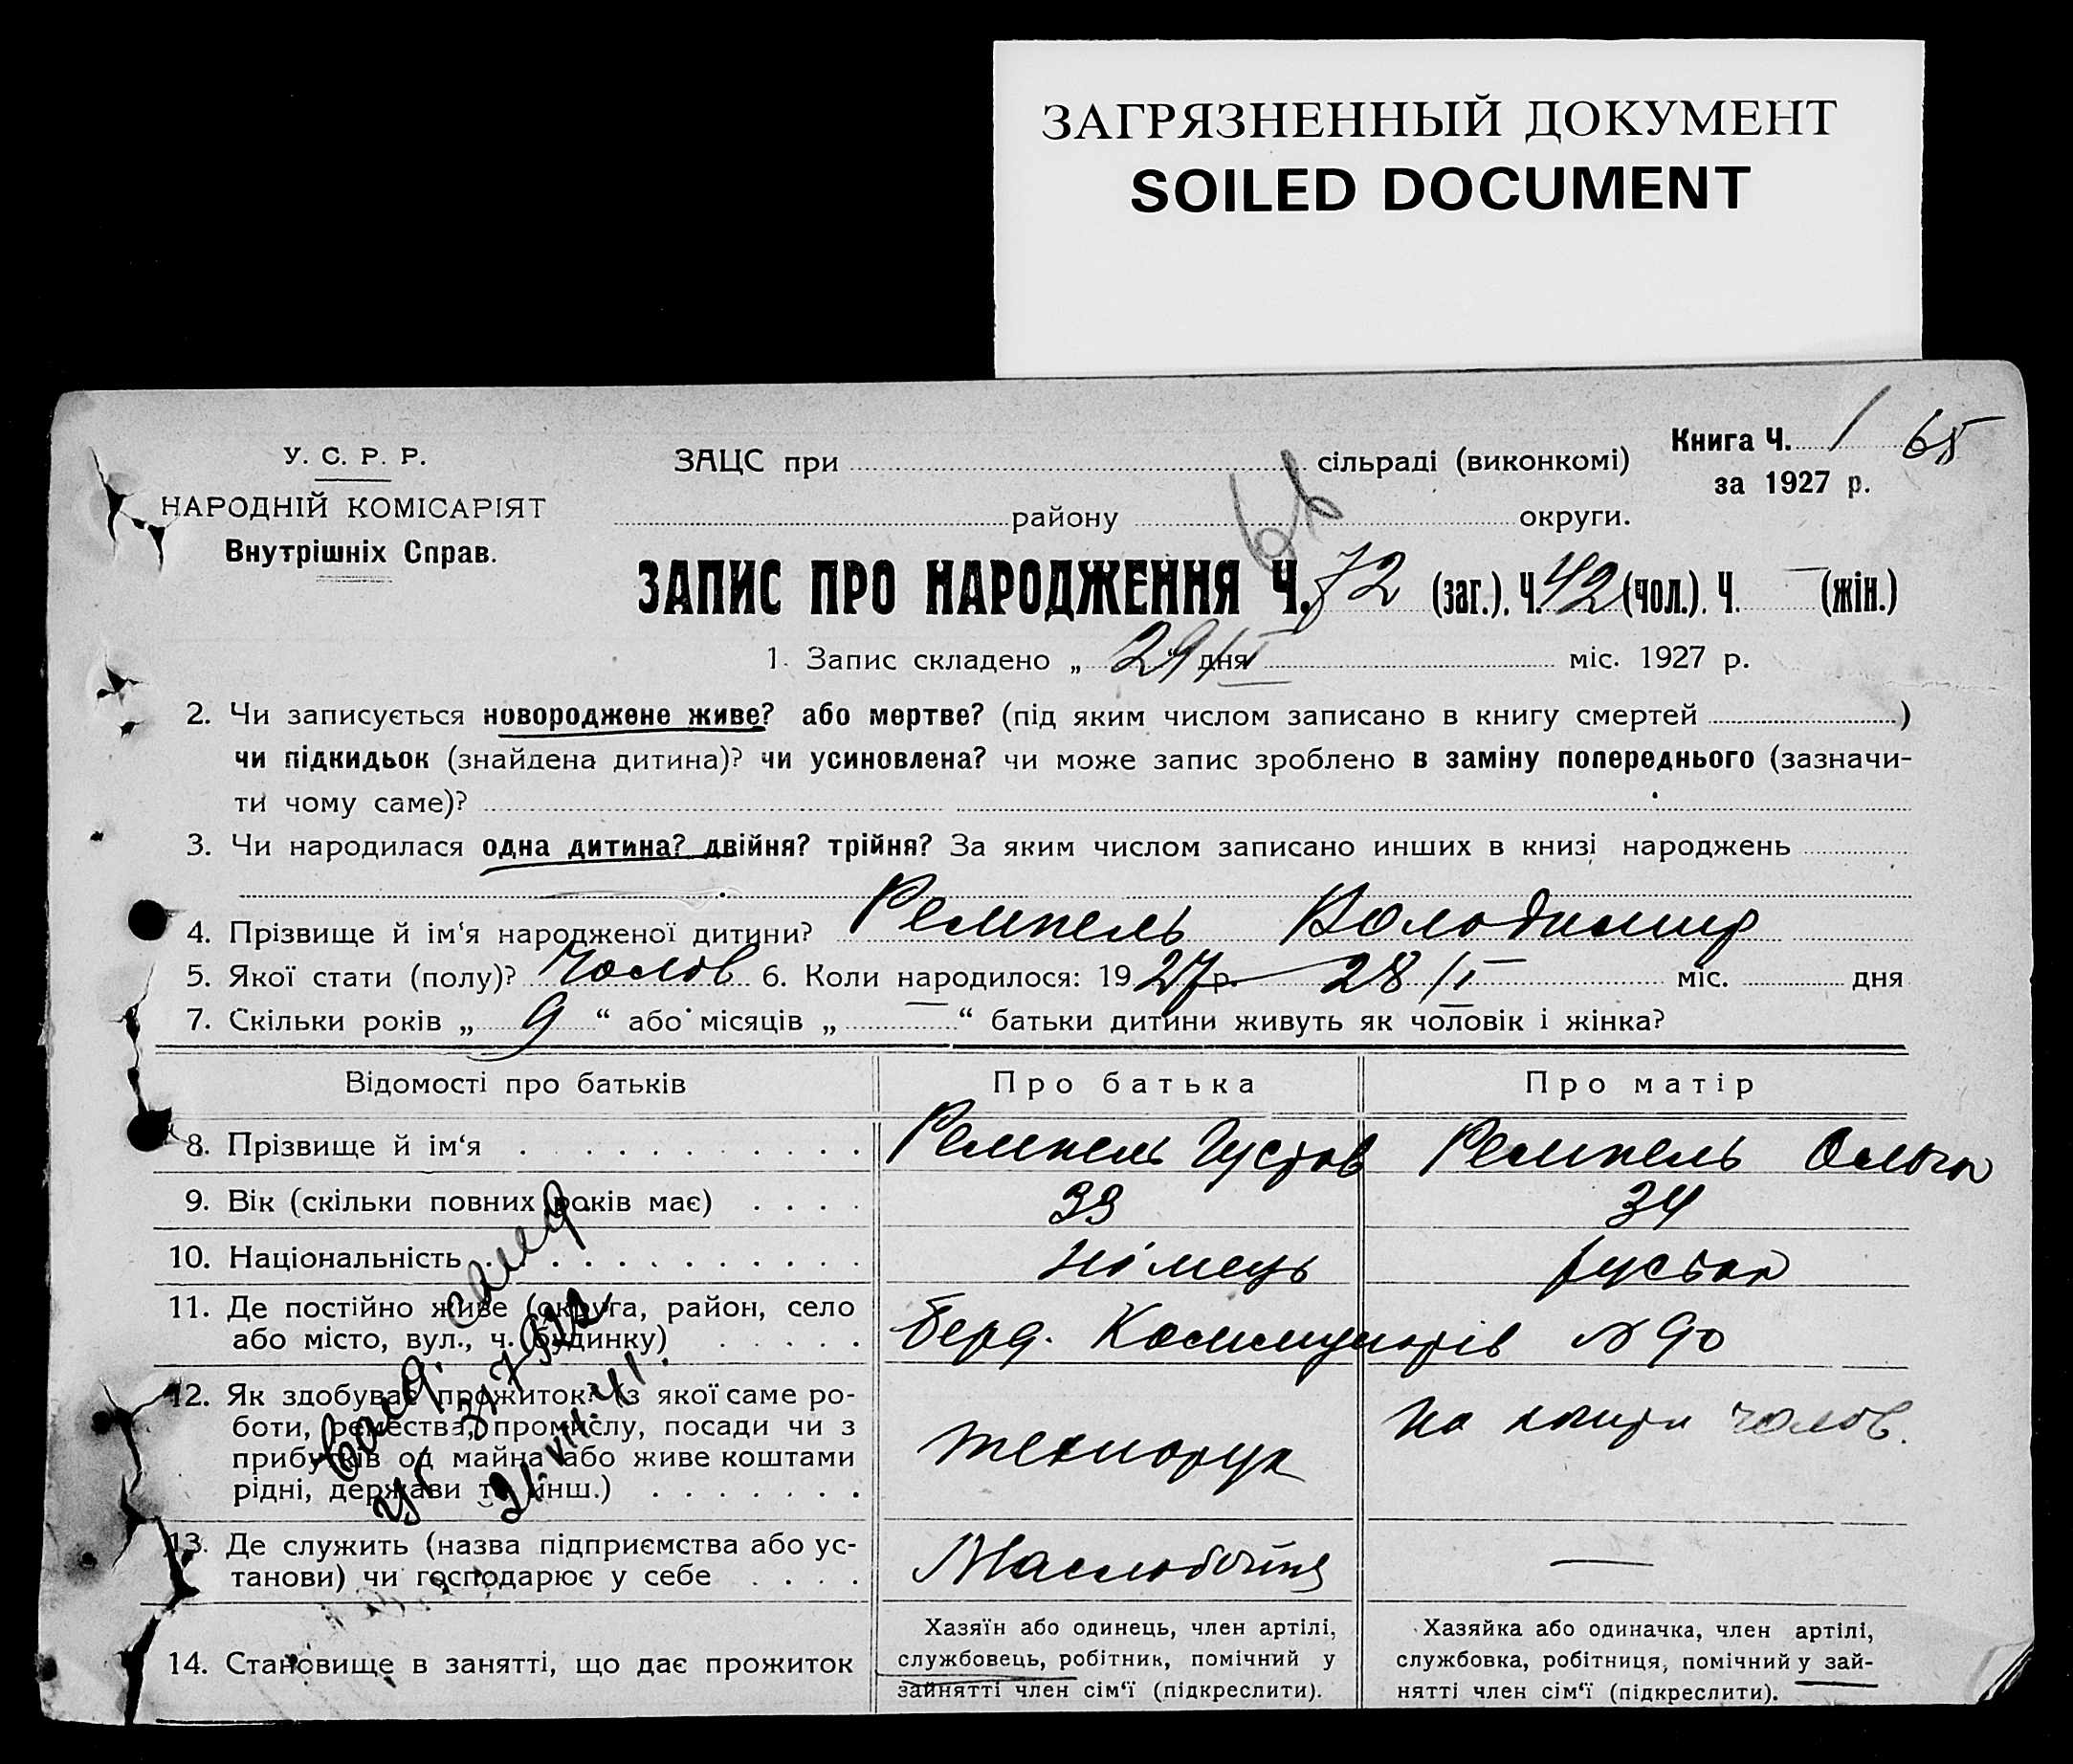 ЗАГРЯЗНЕННЫЙ ДОКУМЕНТ
SOILED DOCUMENT
Книга Ч. 1 65
за 1927 р.
У. С. Р. Р.
НАРОДНІЙ КОМІСАРІЯТ
Внутрішніх Справ.
ЗАЦС при сільраді (виконкомі)
району округи.
ЗАПИС ПРО НАРОДЖЕННЯ Ч. 72 (заг.). Ч. 42 (чол.). Ч. — (жін.)
1. Запис складено „ 29/I “ дня міс. 1927 р.
2. Чи записується новороджене живе? або мертве? (під яким числом записано в книгу смертей )
чи підкидьок (знайдена дитина)? чи усиновлена? чи може запис зроблено в заміну попереднього (зазначи-
ти чому саме)?
3. Чи народилася одна дитина? двійня? трійня? За яким числом записано инших в книзі народжень
4. Прізвище й ім‘я народженої дитини? Ремпель Володимир
5. Якої стати (полу)? Чолов 6. Коли народилося: 1927 р. 28/I міс. дня
7. Скільки років „ 9 “ або місяців „ — “ батьки дитини живуть як чоловік і жінка?
Відомості про батьків Про батька Про матір
8. Прізвище й ім‘я Ремпель Густав Ремпель Ольга
9. Вік (скільки повних років має) 33 34
10. Національність німець руська
11. Де постійно живе (округа, район, село
або місто, вул., ч. будинку) Берд. Коммунарів № 90
12. Як здобуває прожиток? (з якої саме ро-
боти, ремества, промислу, посади чи з
прибутків од майна або живе коштами
рідні, держави та инш.) технорук на кошти чолов.
13. Де служить (назва підприємства або ус-
танови) чи господарює у себе Маслобойня —
14. Становище в занятті, що дає прожиток
Хазяїн або одинець, член артілі,
службовець, робітник, помічний у
зайнятті член сім‘ї (підкреслити).
Хазяйка або одиначка, член артілі,
службовка, робітниця, помічний у зай-
нятті член сім‘ї (підкреслити).
21.VII.41